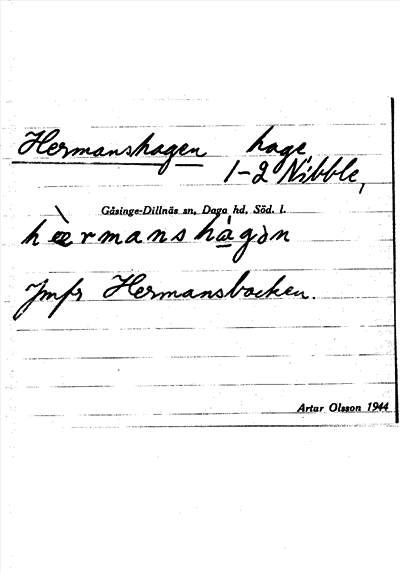 Hermanshagen hage
1-2 Nibble,
Gåsinge-Dillnäs sn, Daga hd, Söd. l.
hæ̀rmanshágən
Jmfr Hermansbacken.
Artur Olsson 1944